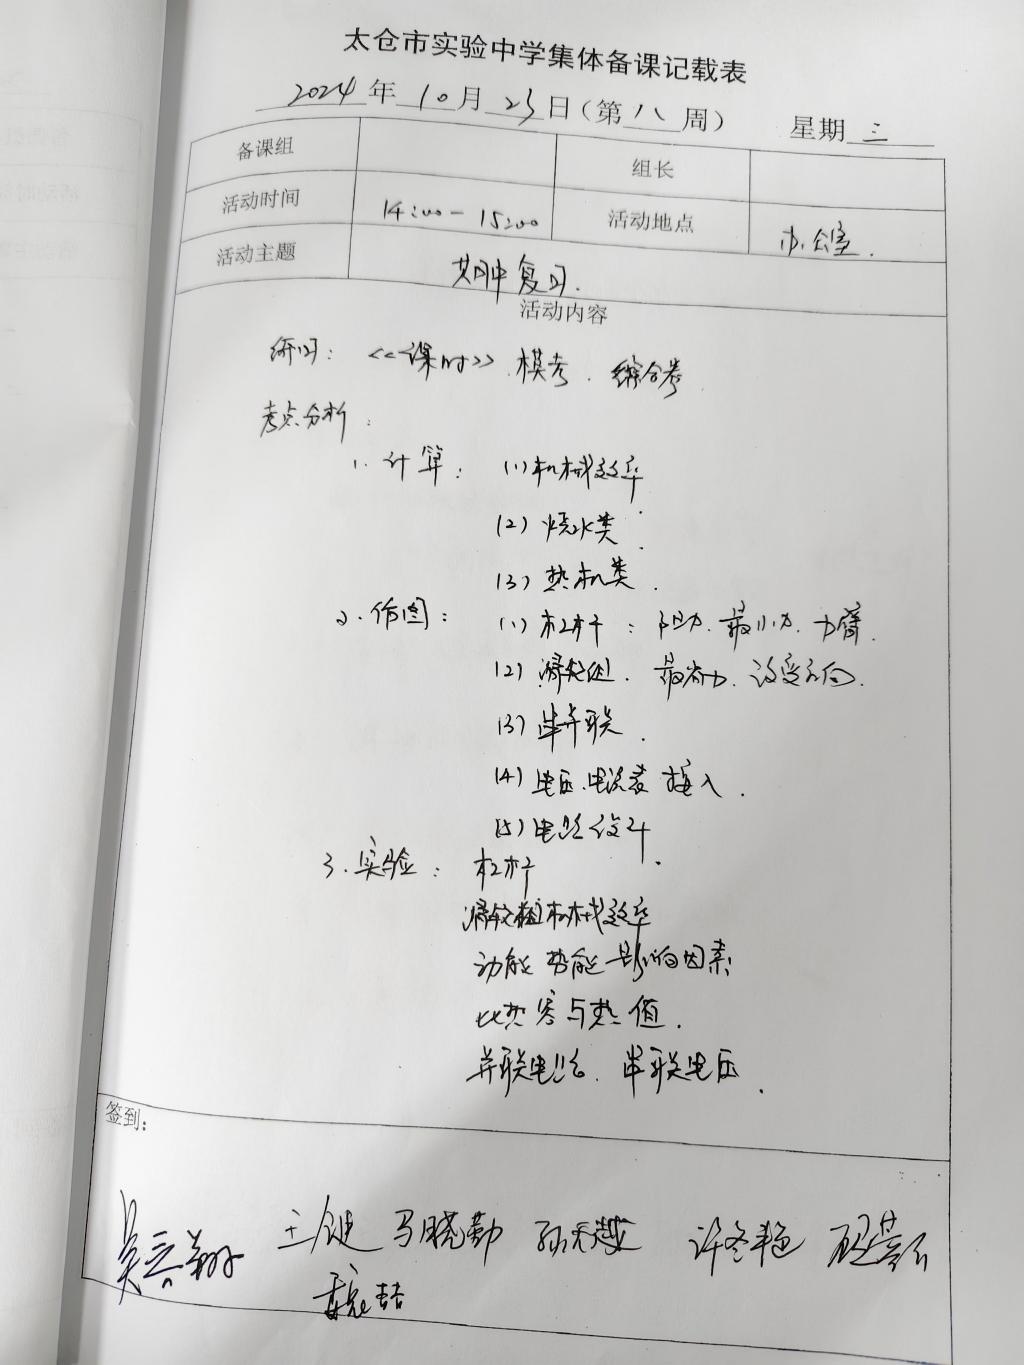 太仓市实验中学集体备课记载表
2024年10月23日（第八周） 星期三
备课组 组长
活动时间 14:00-15:00 活动地点 办公室.
活动主题 期中复习.
活动内容
《课时》. 模考. 综合卷
考点分析:
1. 计算: (1) 机械效率
(2) 烧水类.
(3) 热机类.
2. 作图: (1) 杠杆: 阻力. 最小力. 力臂.
(2) 滑轮组. 最省力.
(3) 串并联.
(4) 电压. 电流表 接入.
(5) 电路设计.
3. 实验: 杠杆
滑轮组机械效率
动能 势能 影响因素
比热容与热值.
并联电路. 串联电压.
签到:
马晓勤